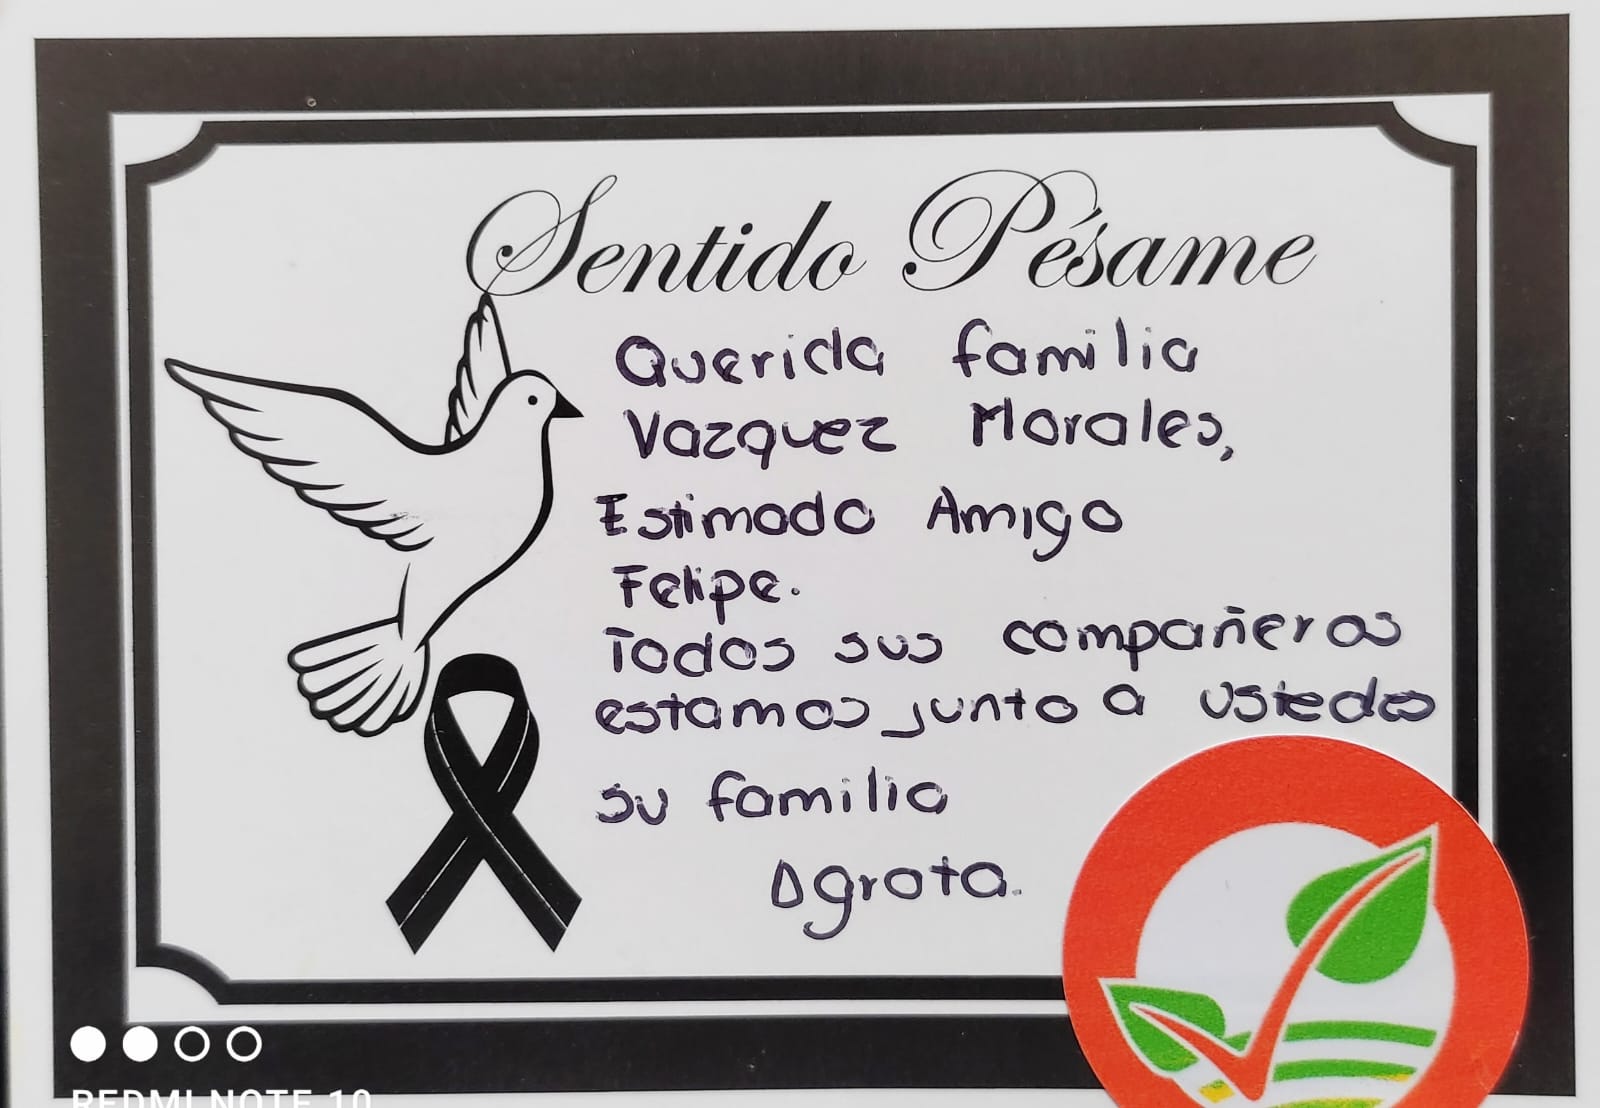 Sentido Pésame
Querida familia
Vazquez Morales,
Estimado Amigo
Felipe.
Todos sus compañeros
estamos junto a ustedes
su familia
Agrota.
REDMI NOTE 10